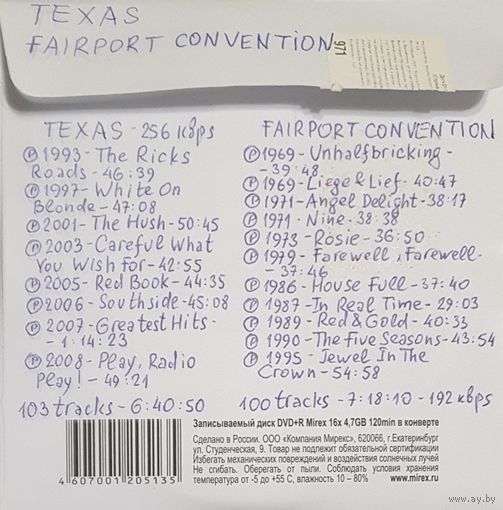 TEXAS
FAIRPORT CONVENTION
971
TEXAS - 256 kBps
℗ 1993 - The Ricks
Roads - 46:39
℗ 1997 - White On
Blonde - 47:08
℗ 2001 - The Hush - 50:45
℗ 2003 - Careful What
You Wish For - 42:55
℗ 2005 - Red Book - 44:35
℗ 2006 - Southside - 45:08
℗ 2007 - Greatest Hits -
- 1:14:23
℗ 2008 - Play, Radio
Play! - 49:21
103 tracks - 6:40:50
FAIRPORT CONVENTION
℗ 1969 - Unhalfbricking -
- 39:48
℗ 1969 - Liege & Lief - 40:47
℗ 1971 - Angel Delight - 38:17
℗ 1971 - Nine - 38:38
℗ 1973 - Rosie - 36:50
℗ 1979 - Farewell, Farewell -
- 37:46
℗ 1986 - House Full - 37:40
℗ 1987 - In Real Time - 29:03
℗ 1989 - Red & Gold - 40:33
℗ 1990 - The Five Seasons - 43:54
℗ 1995 - Jewel In The
Crown - 54:58
100 tracks - 7:18:10 - 192 kBps
Записываемый диск DVD+R Mirex 16x 4,7GB 120min в конверте
Сделано в России. ООО «Компания Мирекс», 620066, г.Екатеринбург
ул. Студенческая, 9. Товар не подлежит обязательной сертификации
Избегать механических повреждений и воздействия солнечных лучей
Не сгибать. Оберегать от пыли. Соблюдать условия хранения
температура от -5 до +55 С, влажность 10 – 80%. www.mirex.ru
4 607001 205135
www.ay.by